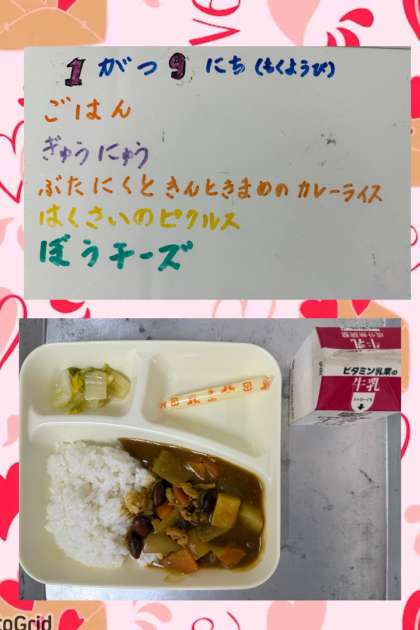 1がつ9にち(もくようび)
ごはん
ぎゅうにゅう
ぶたにくときんときまめのカレーライス
はくさいのピクルス
ぼうチーズ
牛乳
ビタミン乳業の
牛乳
toGrid